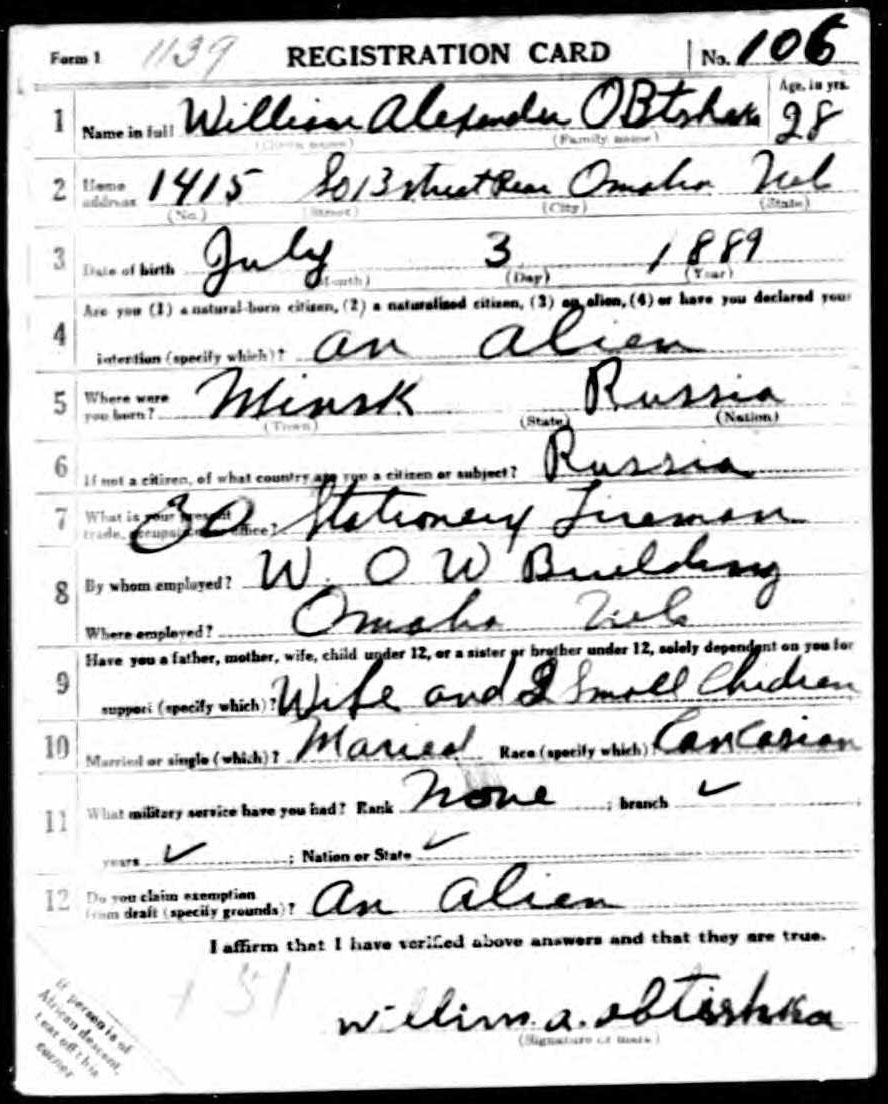 Form 1 1139 REGISTRATION CARD No. 106
1 Name in full William Alexander OBtshka Age, in yrs. 28
(Given name) (Family name)
2 Home address 1415 So 13 street Rear Omaha Neb
(No.) (Street) (City) (State)
3 Date of birth July 3 1889
(Month) (Day) (Year)
4 Are you (1) a natural-born citizen, (2) a naturalized citizen, (3) an alien, (4) or have you declared your
intention (specify which)? an alien
5 Where were you born? Minsk Russia
(Town) (State) (Nation)
6 If not a citizen, of what country are you a citizen or subject? Russia
7 What is your present trade, occupation, or office? 30 Stationery Fireman
8 By whom employed? W. O W Building
Where employed? Omaha Neb
9 Have you a father, mother, wife, child under 12, or a sister or brother under 12, solely dependent on you for
support (specify which)? Wife and 2 Small Chidren
10 Married or single (which)? Maried Race (specify which)? Caucasian
11 What military service have you had? Rank None ; branch ✓
years ✓ ; Nation or State ✓
12 Do you claim exemption from draft (specify grounds)? An Alien
I affirm that I have verified above answers and that they are true.
willim. a. obtishka
(Signature or mark)
If person is of
African descent,
tear off this
corner